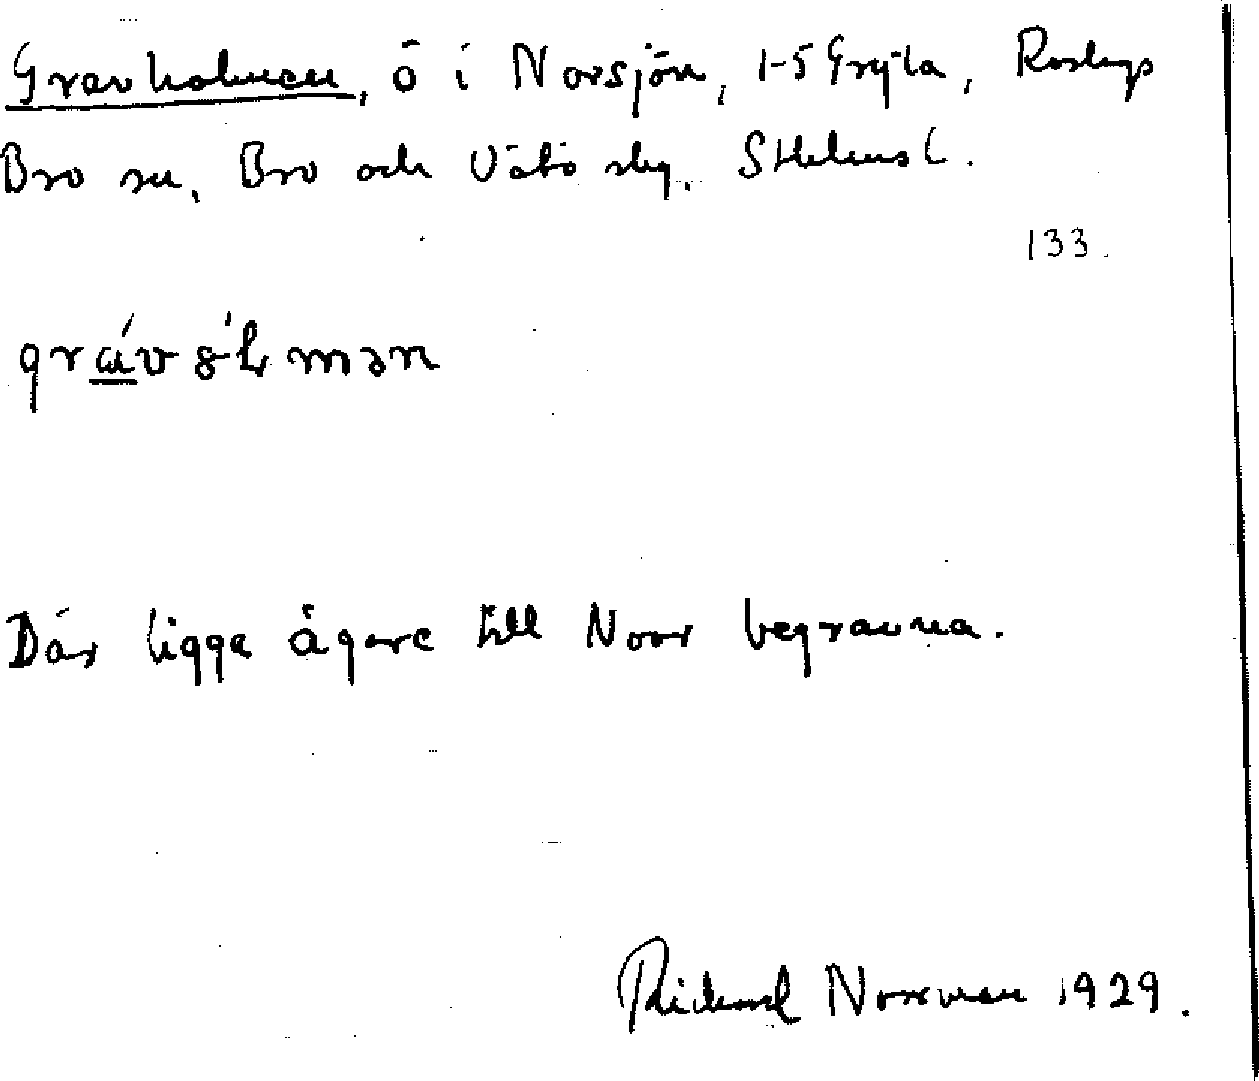 Gravholmen, ö i Norsjön, 1-5 Gryta,
Bro sn, Bro och Vätö skg. Sthlms l.
133.
Där ligga ägare till Noor begravna.
Rickard Norrman 1929.